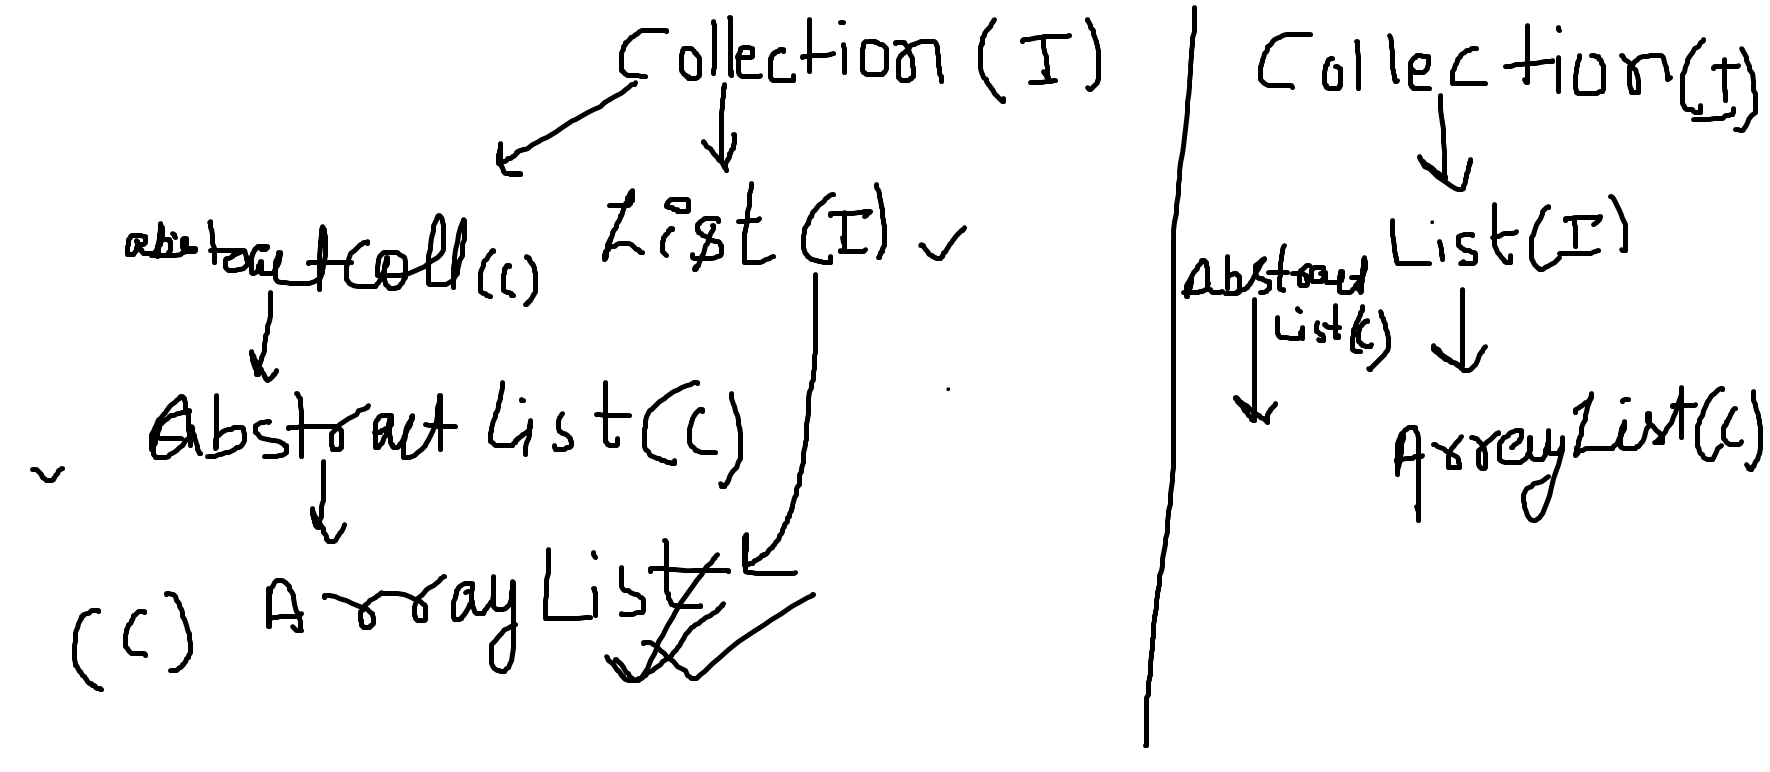 Collection (I)
abstractColl(c)
List (I)
Abstract List(C)
(C) ArrayList
Collection(I)
List(I)
Abstract
List(C)
ArrayList(C)